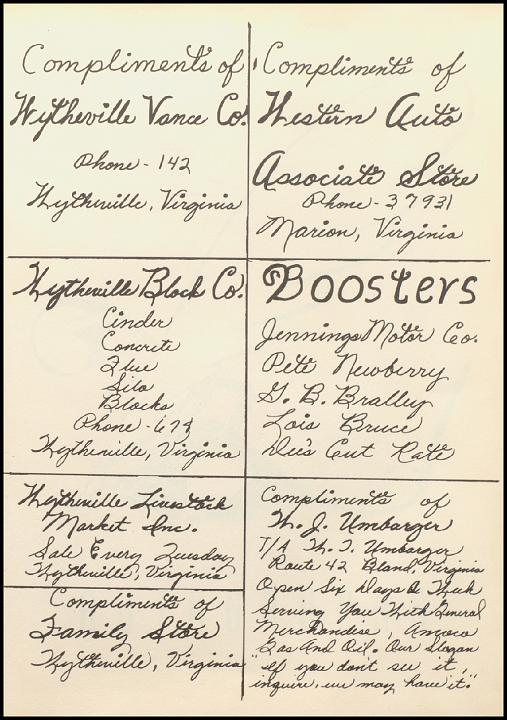 Compliments of
Wytheville Vance Co.
Phone - 142
Wytheville, Virginia
Compliments of
Western Auto
Associate Store
Phone - 37931
Marion, Virginia
Wytheville Block Co.
Cinder
Concrete
Flue
Silo
Blocks
Phone - 674
Wytheville, Virginia
Boosters
Jennings Motor Co.
Pete Newberry
G. B. Bralley
Lois Bruce
Dee's Cut Rate
Wytheville Livestock
Market Inc.
Sale Every Tuesday
Wytheville, Virginia
Compliments of
Family Store
Wytheville, Virginia
Compliments of
Umbarger
T/A Umbarger
Route 42 Bland, Virginia
Open Six Days A Week
Serving You With General
Merchandise, Amoco
Gas And Oil. Our Slogan
"If you don't see it,
inquire, we may have it."